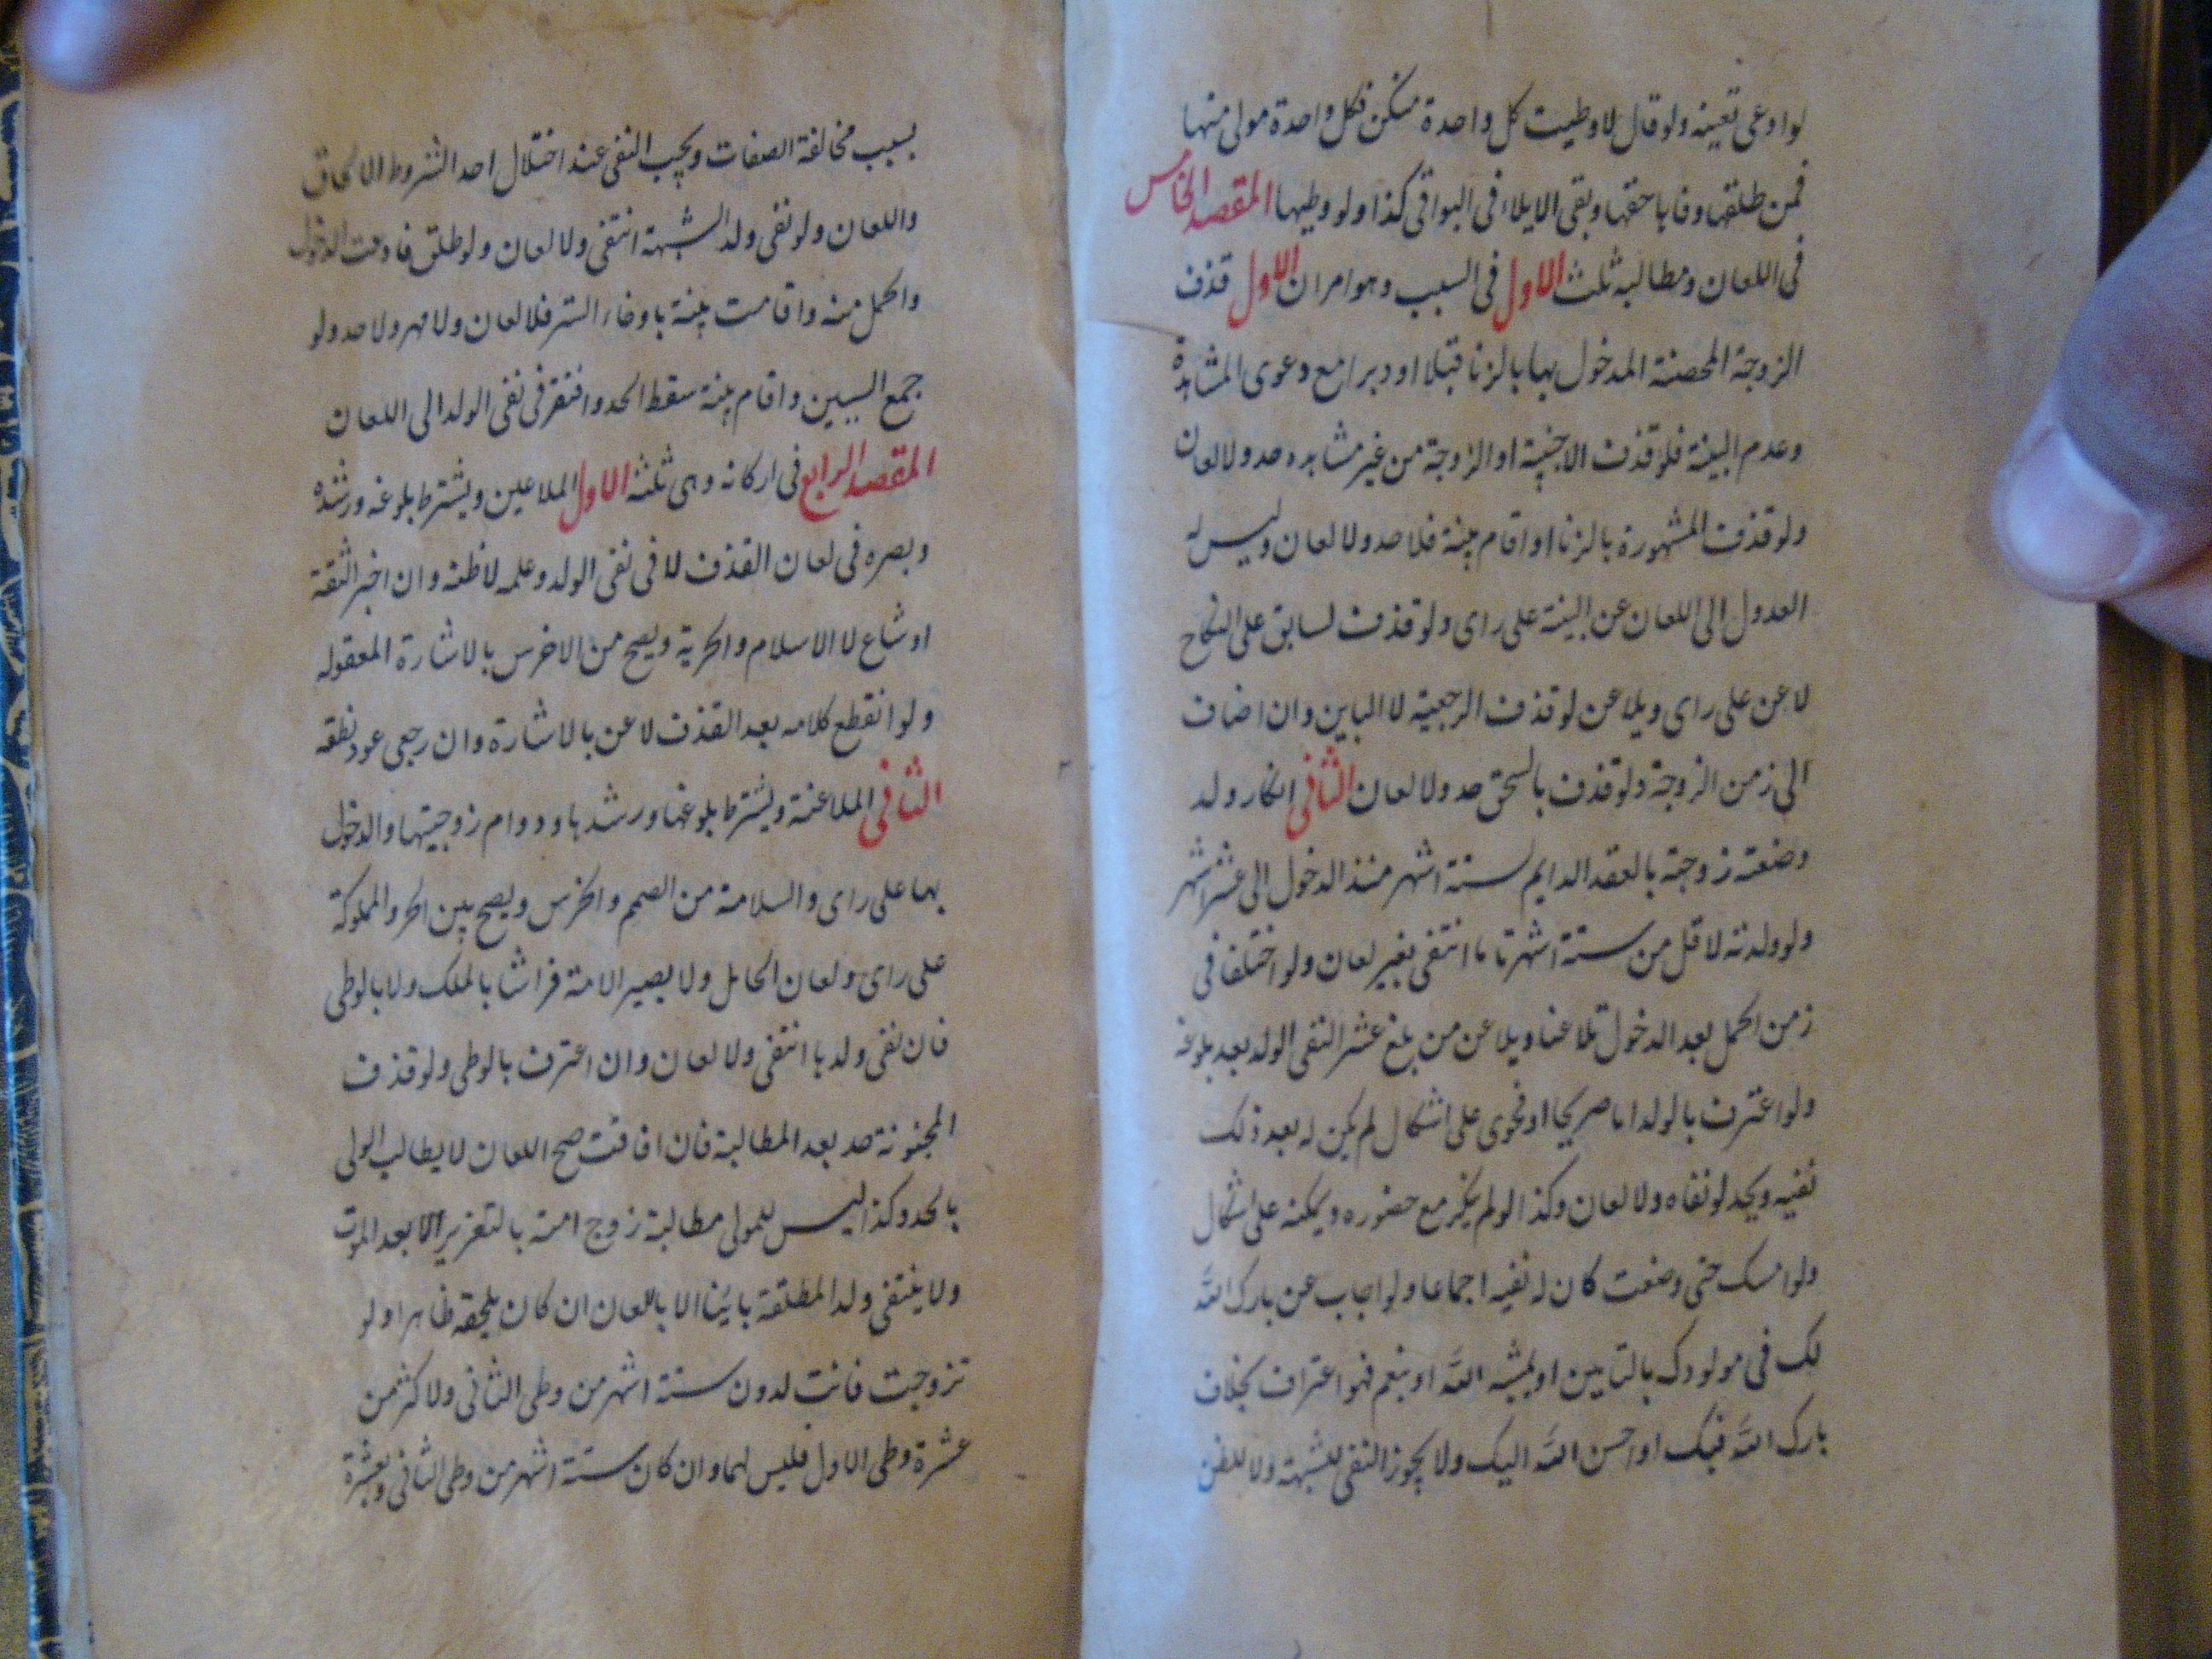 لو ادعى تعيينه ولو قال لا وطيت كل واحدة منكن فكل واحدة مولى منها
فمن طلقها وفاها حقها وبقى الايلاء فى البواقى كذا ولو وطيها المقصد الخامس
فى اللعان ومطالبه ثلث الاول فى السبب وهو امران الاول قذف
الزوجة المحصنة المدخول بها بالزنا قبلا او دبرا مع دعوى المشاهدة
وعدم البينة فلو قذف الاجنبية او الزوجة من غير مشاهده حد ولا لعان
ولو قذف المشهورة بالزنا او اقام بينة فلا حد ولا لعان وليس له
العدول الى اللعان عن البينة على راى ولو قذف لسابق على النكاح
لاعن على راى ويلاعن لو قذف الرجعية لا الباين وان اضاف
الى زمن الزوجة ولو قذف بالسحق حد ولا لعان الثانى انكار ولد
وضعته زوجة بالعقد الدايم لستة اشهر منذ الدخول الى عشرة اشهر
ولو ولدته لاقل من ستة اشهر تاما انتفى بغير لعان ولو اختلفا فى
زمن الحمل بعد الدخول تلاعنا ويلاعن من بلغ عشر النفى الولد بعد بلوغه
ولو اعترف بالولد اما صريحا او فحوى على اشكال لم يكن له بعد ذلك
نفيه ويحد لو نفاه ولا لعان وكذا لو لم ينكر مع حضوره ويمكنه على اشكال
ولو امسك حتى وضعت كان له نفيه اجماعا ولو اجاب عن بارك الله
لك فى مولودك بالتامين او بمشية الله او بنعم فهو اعتراف بخلاف
بارك الله فيك او احسن الله اليك ولا يجوز النفى للشبهة ولا للظن
بسبب مخالفة الصفات ويجب النفى عند اختلال احد الشروط الالحاق
واللعان ولو نفى ولد الشبهة انتفى ولا لعان ولو طلق فادعت الدخول
والحمل منه واقامت بينة بارخاء الستر فلا لعان ولا مهر ولا حد ولو
جمع السببين واقام بينة سقط الحد وافتقر فى نفى الولد الى اللعان
المقصد الرابع فى اركانه وهى ثلثة الاول الملاعن ويشترط بلوغه ورشده
وبصره فى لعان القذف لا فى نفى الولد وعلمه لا ظنه وان اخبر الثقة
او شاع لا الاسلام والحرية ويصح من الاخرس بالاشارة المعقوله
ولو انقطع كلامه بعد القذف لاعن بالاشارة وان رجى عود نطقه
الثانى الملاعنة ويشترط بلوغها ورشدها ودوام زوجيتها والدخول
بها على راى والسلامة من الصمم والخرس ويصح بين الحر والمملوكة
على راى ولعان الحامل ولا يصير الامة فراشا بالملك ولا بالوطى
فان نفى ولدها انتفى ولا لعان وان اعترف بالوطى ولو قذف
المجنونة حد بعد المطالبة فان افاقت صح اللعان لا يطالب الولى
بالحد وكذا ليس للمولى مطالبة زوج امته بالتعزير الا بعد الموت
ولا ينتفى ولد المطلقة باينا الا باللعان ان كان يلحقه ظاهرا ولو
تزوجت فاتت لدون ستة اشهر من وطى الثانى ولاكثر من
عشرة وطى الاول فليس لهما وان كان ستة اشهر من وطى الثانى وبعشرة